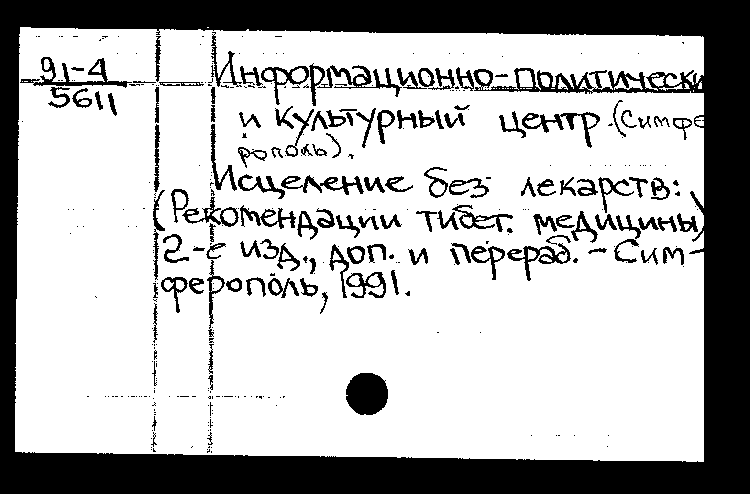 91-4
5611
Информационно-политически
и культурный центр (Симфе
рополь).
Исцеление без лекарств:
(Рекомендации тибет. медицины)
2-е изд., доп. и перераб. - Сим-
ферополь, 1991.